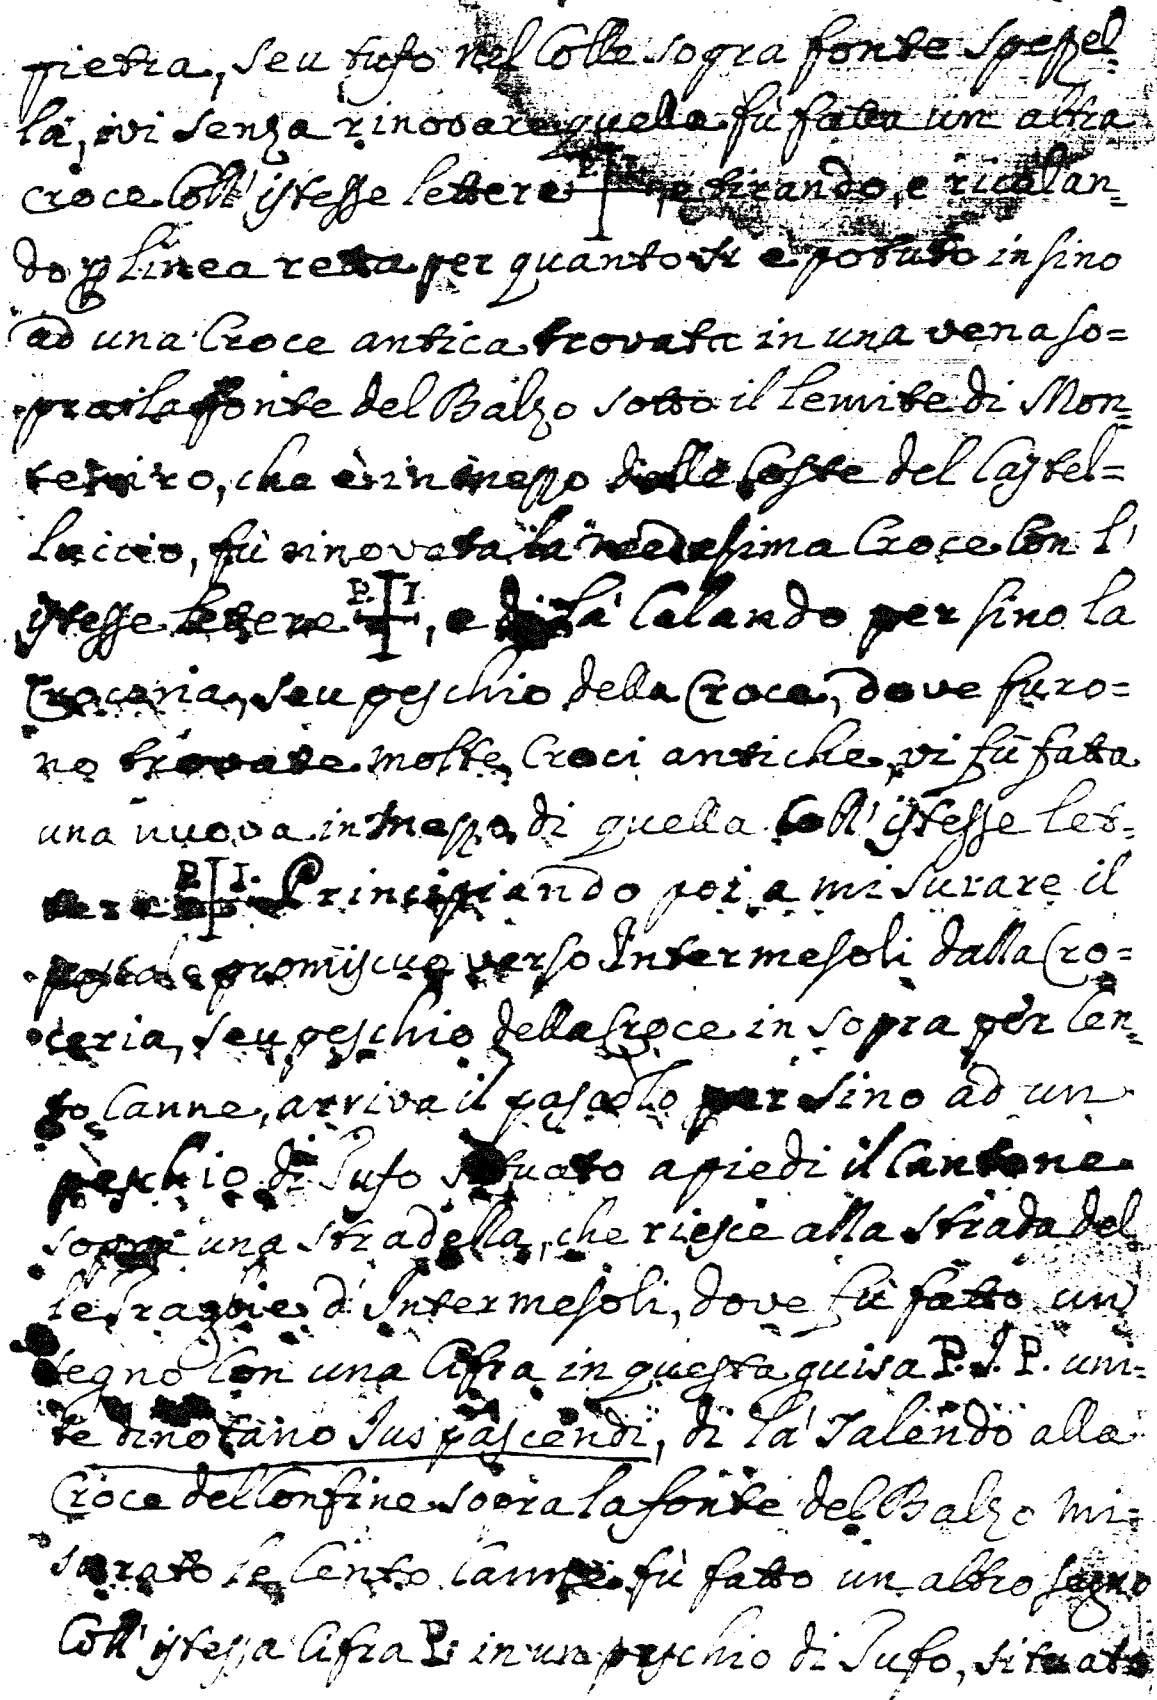 pietra, seu tufo nel Colle sopra fonte spezel-
la, ivi senza rinovare quella fù fatta un altra
Croce Coll' istesse lettere P. I. e tirando, e ricalan-
do p linea retta per quanto si e potuto insino
ad una Croce antica trovata in una vena so=
pra la fonte del Balzo sotto il lemite di Mon-
teviro, che è in mezzo delle Coste del Castel=
luccio, fù rinovata la medesima Croce Con l'
istesse lettere P. I., e di là Calando per sino la
Croceria, seu peschio della Croce, dove furo=
no trovate molte Croci antiche, vi fù fatta
una nuova in mezzo di quella Coll' istesse let-
tere P. I. Principiando poi a misurare il
pascolo promiscuo verso Intermesoli dalla Cro=
ceria, seu peschio della Croce in sopra per Cen-
to Canne, arriva il pascolo per sino ad un
peschio di Tufo situato a piedi il Cantone
sopra una stradella, che riesce alla strada del
le Fraghie d' Intermesoli, dove fù fatto un
segno Con una Cifra in questa guisa P. I. P. uni-
te dinotano Jus pascendi, di là Salendo alla
Croce del Confine sopra la fonte del Balzo mi=
surato le Cento Canne fù fatto un altro segno
Coll' istessa Cifra P. in un peschio di Tufo, situato